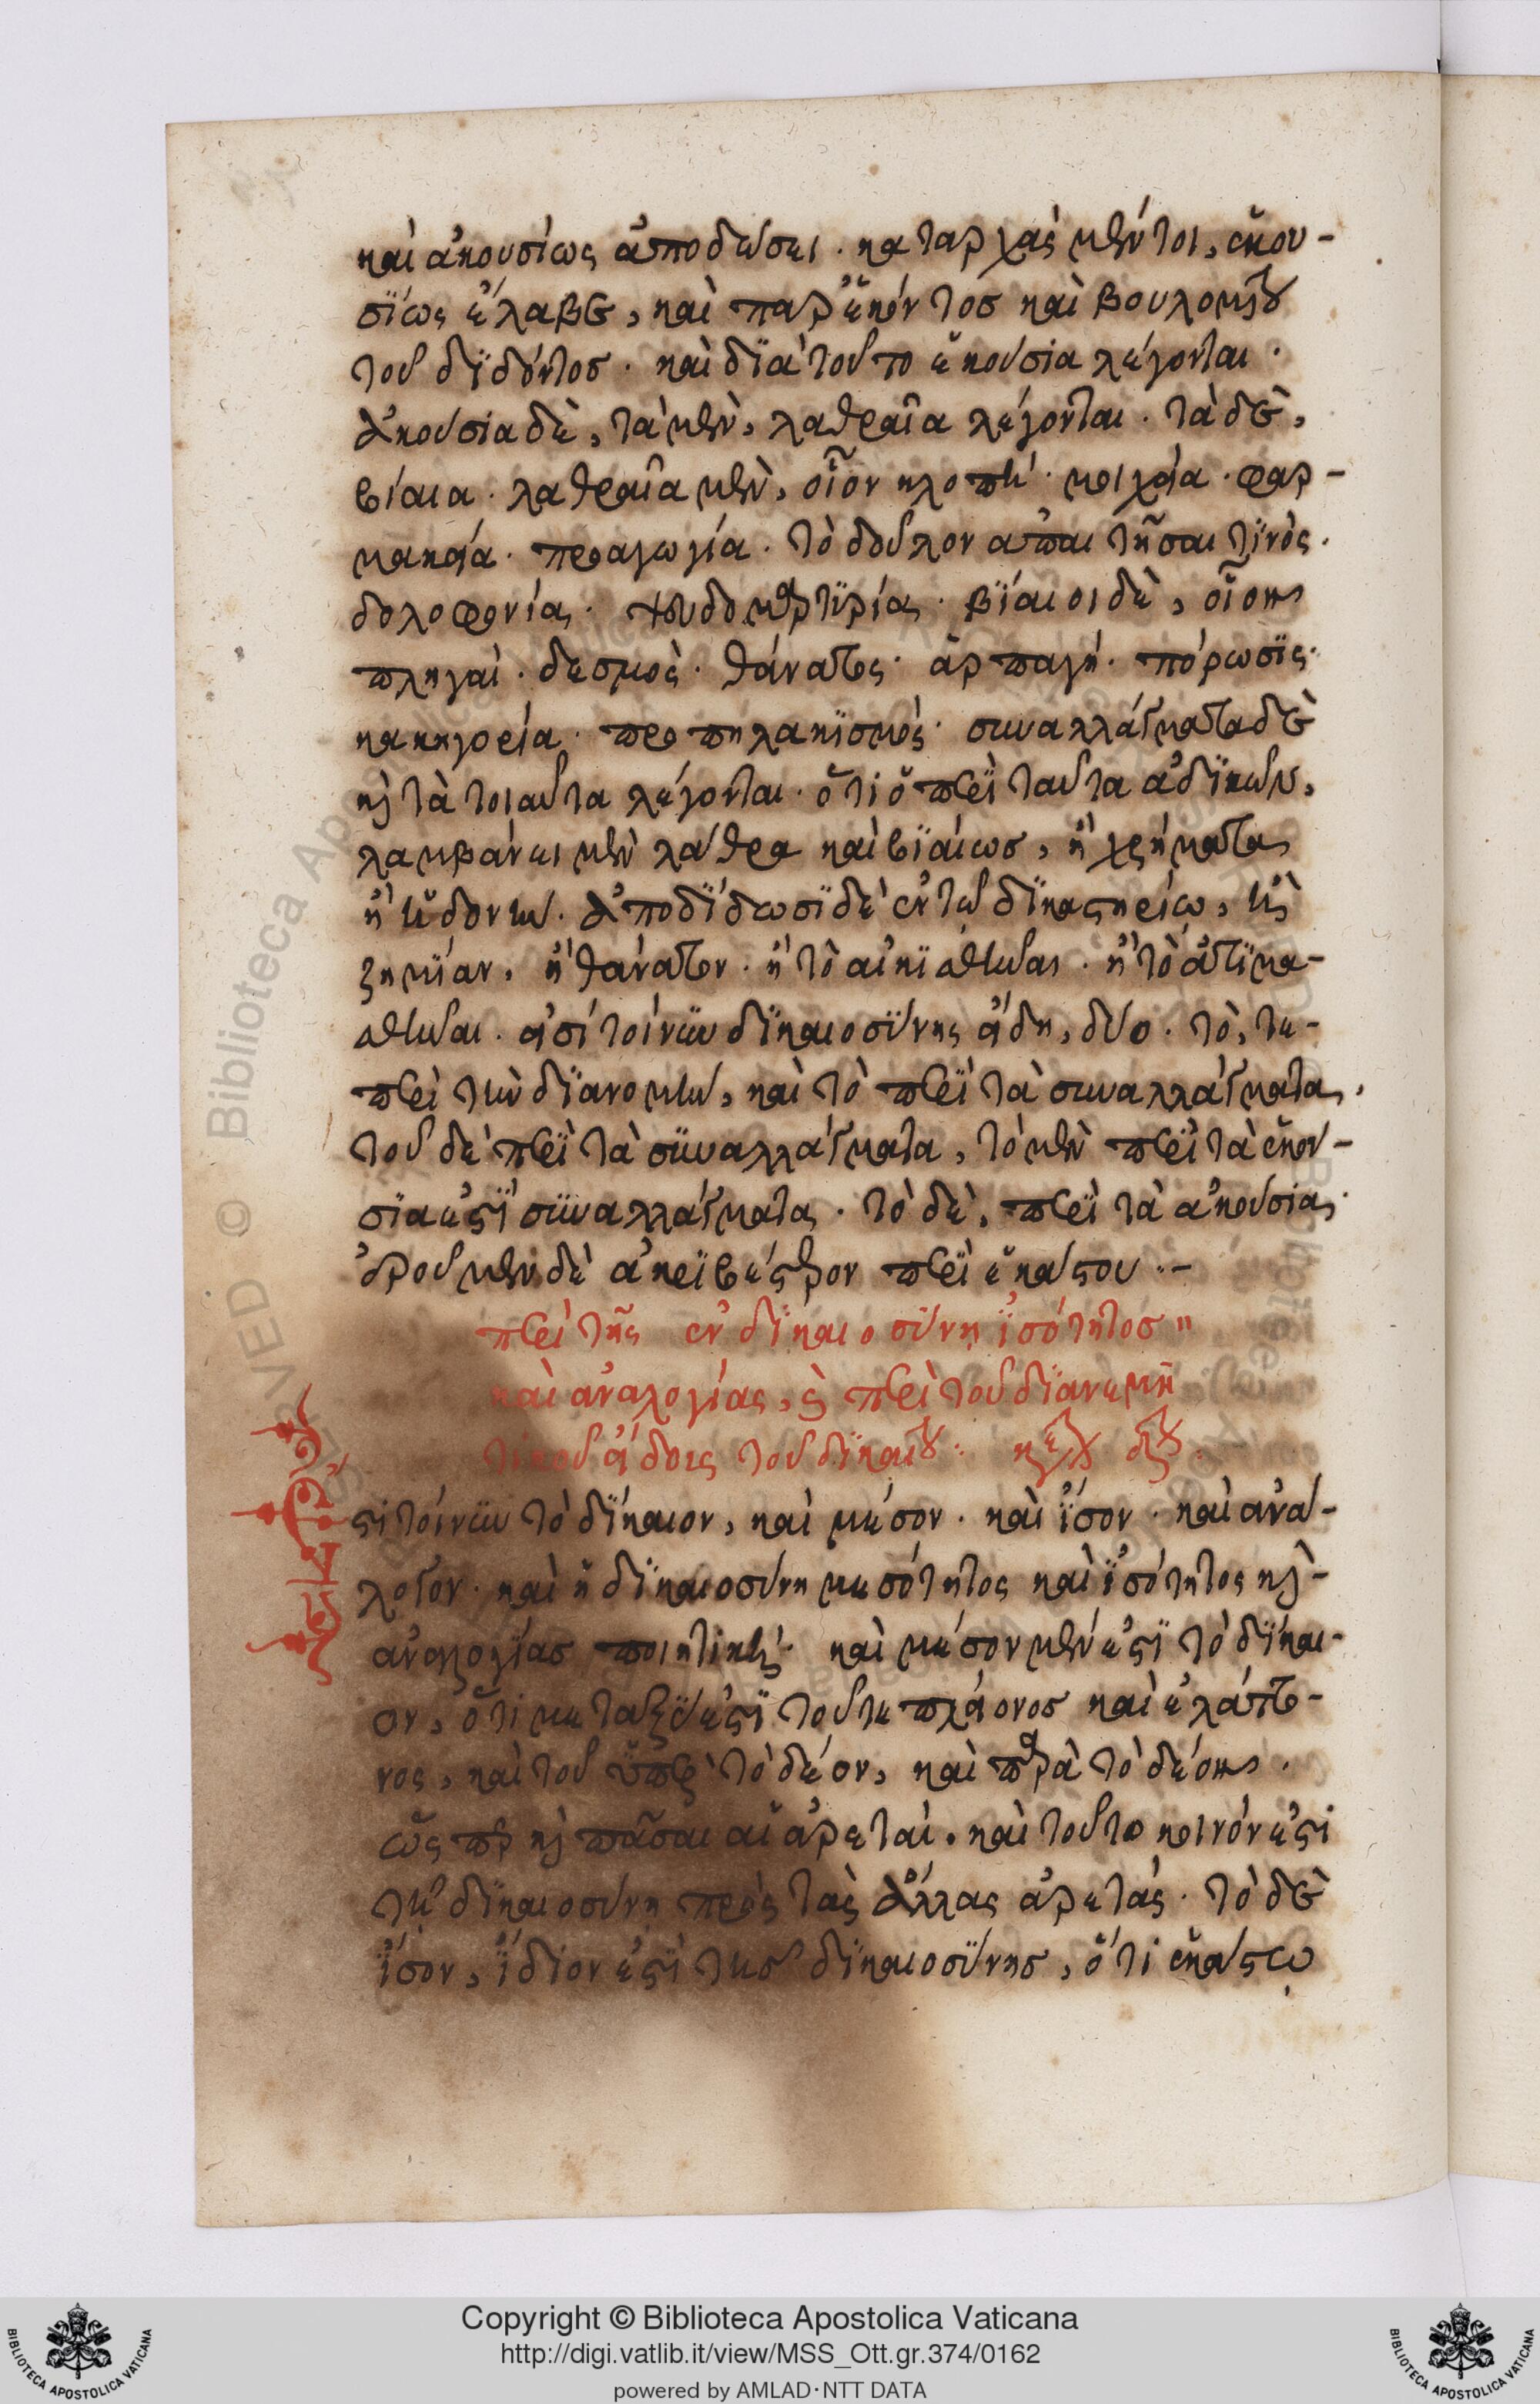 καὶ ἀκουσίως ἀποδώσει· καταρχὰς μέντοι, ἑκου-
σίως ἔλαβε, καὶ παρ ἑκόντος καὶ βουλομένου
τοῦ διδόντος· καὶ διὰ τοῦτο ἑκούσια λέγονται·
ἀκούσια δὲ, τὰ μὲν, λαθραῖα λέγονται· τὰ δὲ,
βίαια· λαθραῖα μὲν, οἷον κλοπή· μοιχεία· φαρ-
μακεία· προαγωγία· τὸ δοῦλον ἀπατῆσαι τινός·
δολοφονίας· ψευδομαρτυρίας· βίαιοι δὲ, οἷον
πληγαὶ· δεσμὸς· θάνατος· ἁρπαγή· πόρωσις·
κακηγορία· προπηλακισμός· συναλλάγματα δὲ
καὶ τὰ τοιαῦτα λέγονται· ὅτι ὁ περὶ ταῦτα ἀδικῶν,
λαμβάνει μὲν λάθρα καὶ βιαίως, ἢ χρήματα
ἢ ἡδονήν· ἀποδίδωσι δὲ ἐν τῷ δικαστηρίῳ, ἢ
ζημίαν, ἢ θάνατον· ἢ τὸ αἰκισθῆναι· ἢ τὸ ἀτιμα-
σθῆναι· εἰσί τοίνυν δικαιοσύνης εἴδη, δύο· τὸ, τε
περὶ τὴν διανομὴν, καὶ τὸ περὶ τὰ συναλλάγματα,
τοῦ δὲ περὶ τὰ συναλλάγματα, τὸ μὲν περὶ τὰ ἑκού-
σια ἐστὶ συναλλάγματα· τὸ δὲ, περὶ τὰ ἀκούσια·
ἐροῦμεν δὲ ἀκριβέστερον περὶ ἑκάστου··-
περὶ τῆς ἐν δικαιοσύνῃ ἰσότητος"
καὶ ἀναλογίας, καὶ περὶ τοῦ διανεμη
τικοῦ εἴδους τοῦ δικαίου:
Ἐστὶ τοίνυν τὸ δίκαιον, καὶ μέσον· καὶ ἴσον· καὶ ἀνά-
λογον· καὶ ἡ δικαιοσύνη μεσότητος καὶ ἰσότητος καὶ-
ἀναλογίας ποιητική· καὶ μέσον μὲν ἐστὶ τὸ δίκαι-
ον, ὅτι μεταξύ ἐστὶ τοῦ τε πλείονος καὶ ἐλάττο-
νος, καὶ τοῦ ὑπὲρ τὸ δέον, καὶ παρὰ τὸ δέον·
ὥς περ καὶ πᾶσαι αἱ ἀρεταί, καὶ τοῦτο κοινόν ἐστι
τῇ δικαιοσύνῃ πρὸς τὰς ἄλλας ἀρετάς· τὸ δὲ
ἴσον, ἴδιον ἐστὶ τῆς δικαιοσύνης, ὅτι ἑκάστῳ
Copyright © Biblioteca Apostolica Vaticana
http://digi.vatlib.it/view/MSS_Ott.gr.374/0162
powered by AMLAD·NTT DATA
BIBLIOTECA APOSTOLICA VATICANA
BIBLIOTECA APOSTOLICA VATICANA